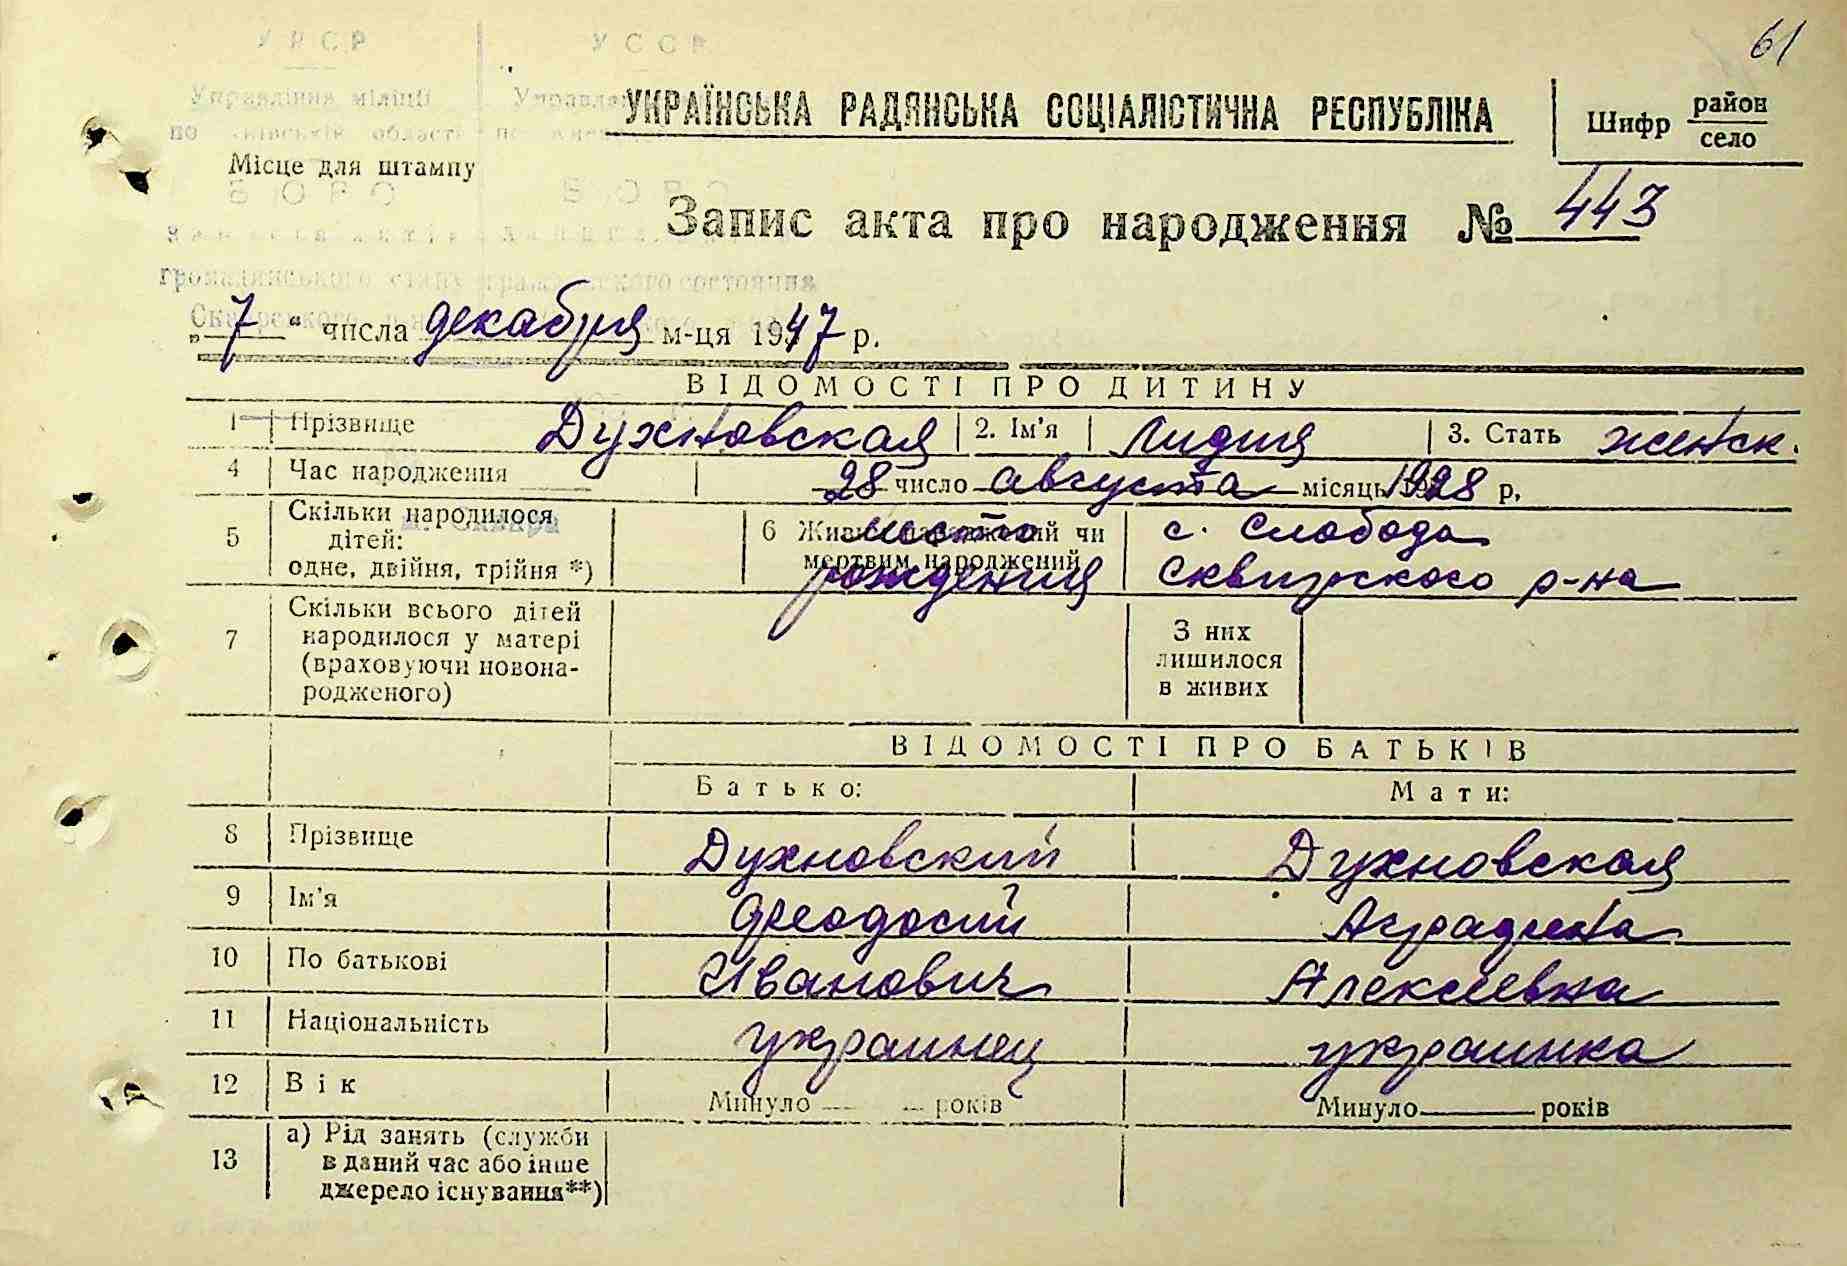 61
УРСР УССР
Управління міліції
УКРАЇНСЬКА РАДЯНСЬКА СОЦІАЛІСТИЧНА РЕСПУБЛІКА
Шифр район
село
по Київській області
Місце для штампу
БЮРО БЮРО
Запис акта про народження № 443
громадянського стану гражданского состояния
„7“ числа декабря м-ця 1947 р.
ВІДОМОСТІ ПРО ДИТИНУ
1 Прізвище Духновская 2. Ім'я Лидия 3. Стать женск.
4 Час народження 28 число августа місяць 1928 р.
5 Скільки народилося
дітей:
одне, двійня, трійня *)
м. Сквира
6 Живим народжений чи
мертвим народжений
место
рождения
с. Слобода
Сквирского р-на
7 Скільки всього дітей
народилося у матері
(враховуючи новона-
родженого)
З них
лишилося
в живих
ВІДОМОСТІ ПРО БАТЬКІВ
Батько: Мати:
8 Прізвище Духновский Духновская
9 Ім'я Феодосий Аграфена
10 По батькові Иванович Алексеевна
11 Національність украинец украинка
12 Вік Минуло років Минуло років
13 а) Рід занять (служби
в даний час або інше
джерело існування**)